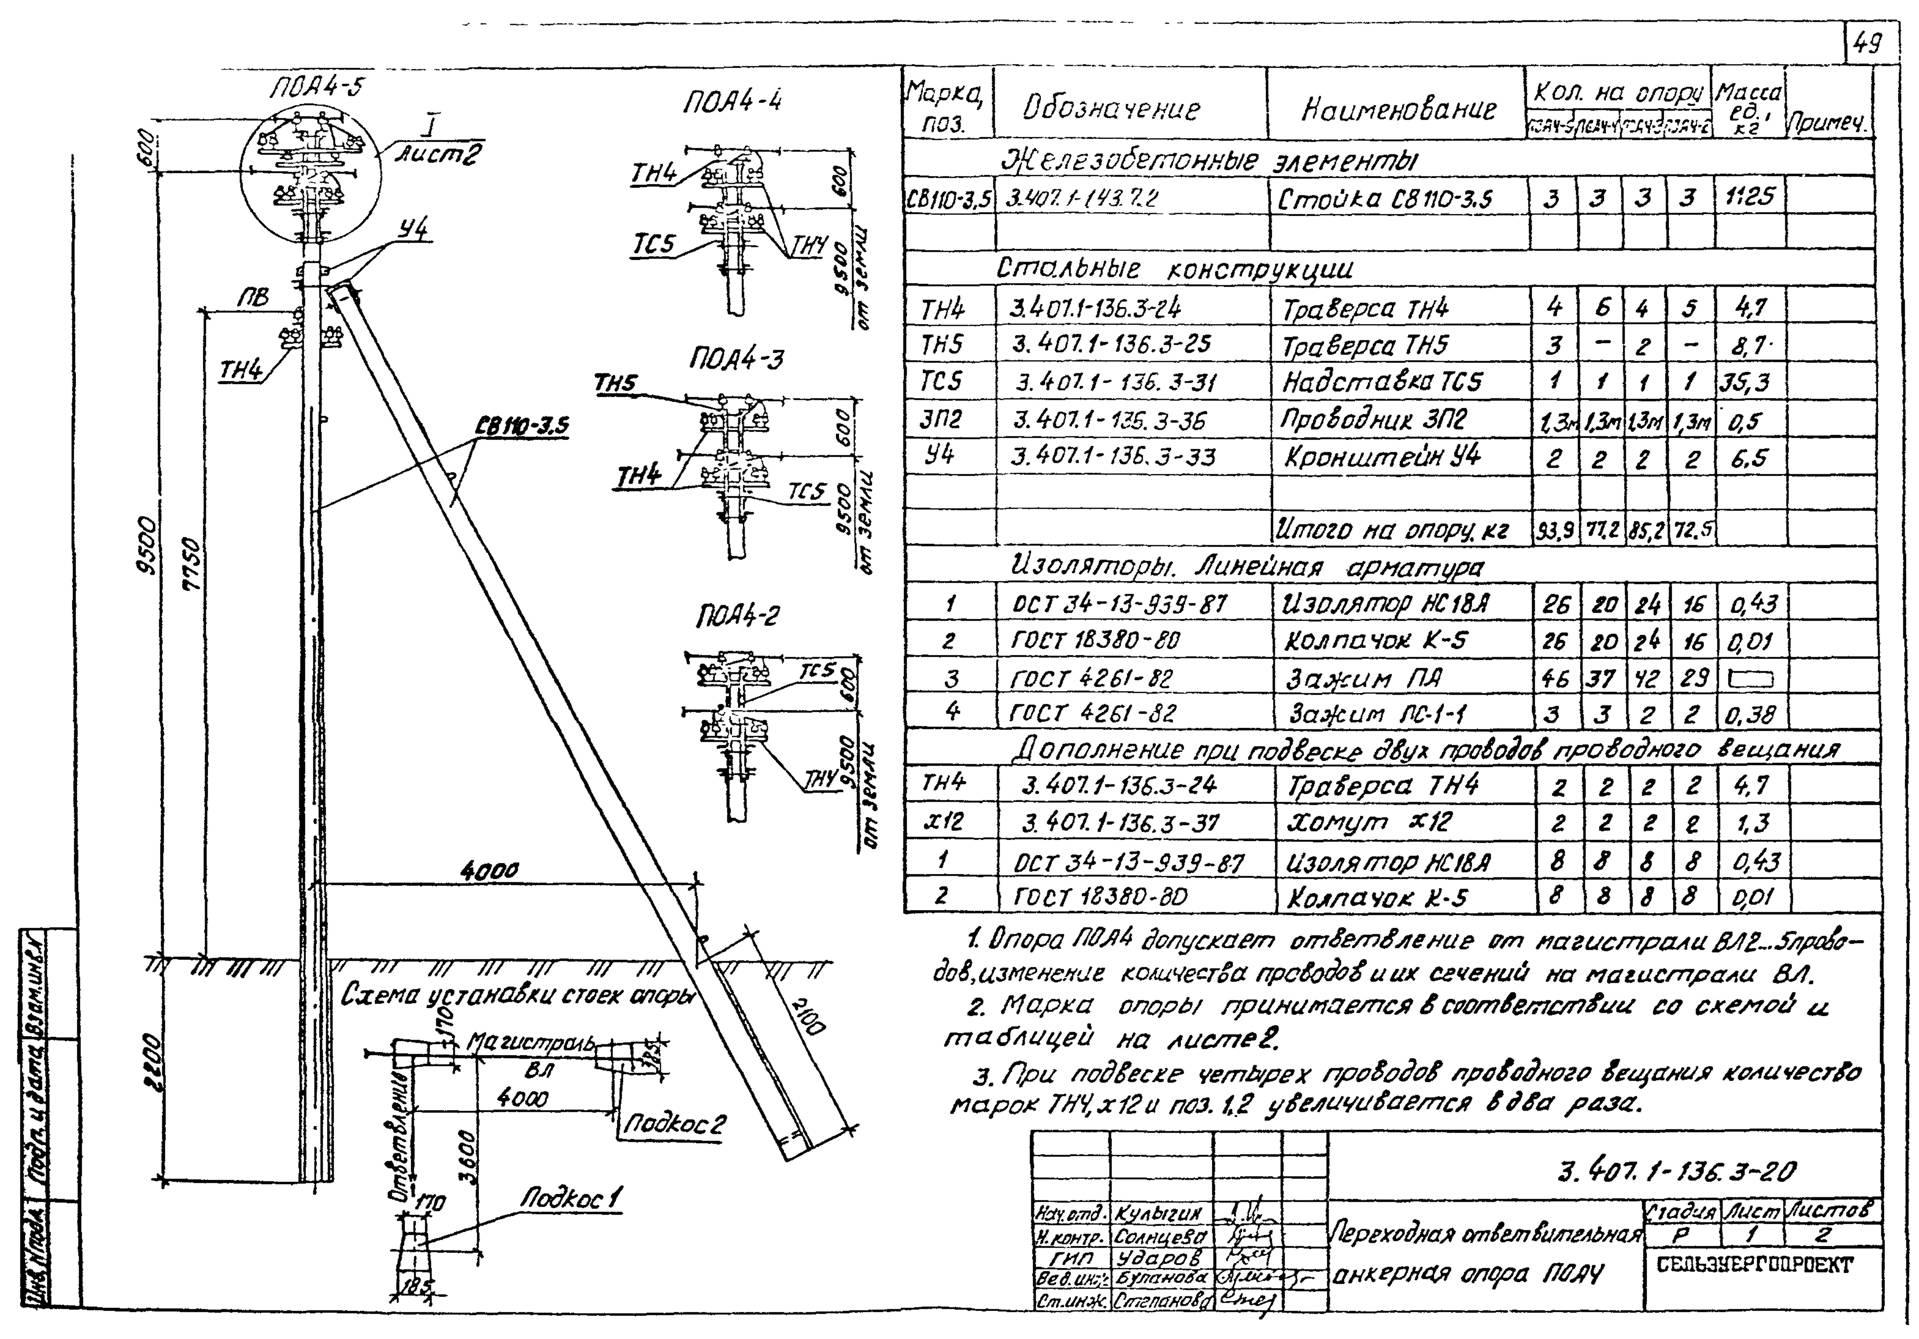 49
ПОА4-5
I
Лист 2
600
У4
ПВ
ТН4
СВ110-3.5
9500
7750
2200
4000
2100
ПОА4-4
ТН4
ТС5
ТН4
600
9500
от земли
ПОА4-3
ТН5
ТН4
ТС5
600
9500
от земли
ПОА4-2
ТС5
ТН4
600
9500
от земли
Схема установки стоек опоры
170
Магистраль
ВЛ
385
Ответвление
4000
Подкос 2
3600
170
Подкос 1
185
Марка, поз. Обозначение Наименование Кол. на опору Масса ед., кг Примеч.
ПОА4-5 ПОА4-4 ПОА4-3 ПОА4-2
Железобетонные элементы
СВ110-3.5 3.407.1-143.7.2 Стойка СВ110-3.5 3 3 3 3 1125
Стальные конструкции
ТН4 3.407.1-136.3-24 Траверса ТН4 4 6 4 5 4,7
ТН5 3.407.1-136.3-25 Траверса ТН5 3 – 2 – 8,7
ТС5 3.407.1-136.3-31 Надставка ТС5 1 1 1 1 35,3
ЗП2 3.407.1-136.3-36 Проводник ЗП2 1,3м 1,3м 1,3м 1,3м 0,5
У4 3.407.1-136.3-33 Кронштейн У4 2 2 2 2 6.5
Итого на опору, кг 93,9 77,2 85,2 72.5
Изоляторы. Линейная арматура
1 ОСТ 34-13-939-87 Изолятор НС18А 26 20 24 16 0,43
2 ГОСТ 18380-80 Колпачок К-5 26 20 24 16 0,01
3 ГОСТ 4261-82 Зажим ПА 46 37 42 29
4 ГОСТ 4261-82 Зажим ПС-1-1 3 3 2 2 0,38
Дополнение при подвеске двух проводов проводного вещания
ТН4 3.407.1-136.3-24 Траверса ТН4 2 2 2 2 4,7
Х12 3.407.1-136.3-37 Хомут Х12 2 2 2 2 1,3
1 ОСТ 34-13-939-87 Изолятор НС18А 8 8 8 8 0,43
2 ГОСТ 18380-80 Колпачок К-5 8 8 8 8 0,01
1. Опора ПОА4 допускает ответвление от магистрали ВЛ 2...5 прово-
дов, изменение количества проводов и их сечений на магистрали ВЛ.
2. Марка опоры принимается в соответствии со схемой и
таблицей на листе 2.
3. При подвеске четырех проводов проводного вещания количество
марок ТН4, х12 и поз. 1,2 увеличивается в два раза.
3.407.1-136.3-20
Нач. отд. Кулыгин
Н. контр. Солнцева
ГИП Ударов
Вед. инж. Буланова
Ст. инж. Степанова
Переходная ответвительная
анкерная опора ПОА4
Стадия Лист Листов
Р 1 2
СЕЛЬЭНЕРГОПРОЕКТ
Взам. инв. N
Подп. и дата
Инв. N подл.